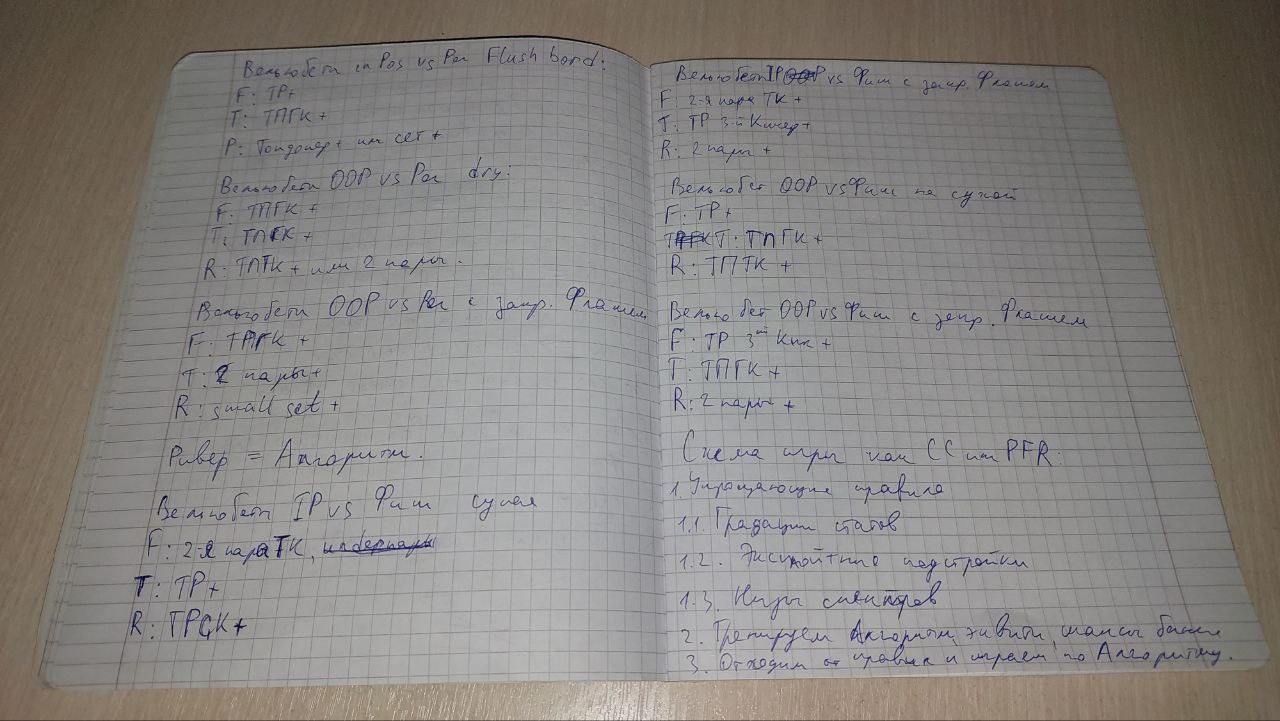 Вельюбеты in Pos vs Рег Flush bord:
F: TP+
T: ТПГК +
P: Топдопер+ или сет +
Вельюбеты OOP vs Рег dry:
F: ТПГК +
T: ТПГК +
R: ТПТК + или 2 пары.
Вельюбеты OOP vs Рег с закр. Флашем
F: ТПГК +
T: 2 пары+
R: small set +
Ривер = Алгоритм.
Вельюбеты IP vs Фиш сухая
F: 2-я пара ТК,
T: TP+
R: TPGK+
Вельюбеты IP vs Фиш с закр. Флашем
F: 2-я пара ТК +
T: TP 3-й Кикер+
R: 2 пары +
Вельюбет OOP vs Фиш на сухой
F: TP+
T: ТПГК +
R: ТПТК +
Вельюбет OOP vs Фиш с закр. Флашем
F: TP 3й Кик +
T: ТПГК +
R: 2 пары +
Схема игры как CC или PFR:
1. Упрощающие правила
1.1. Градации статов
1.2. Эксплойтные подстройки
1.3. Низы спектров
2. Тренируем Алгоритм, эквити, шансы банка
3. Отходим от правил и играем по Алгоритму.